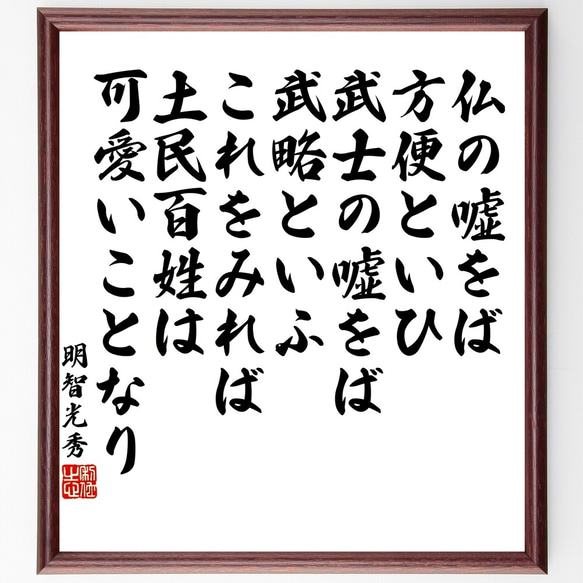 仏の嘘をば
方便といひ
武士の嘘をば
武略といふ
これをみれば
土民百姓は
可愛いことなり
明智光秀